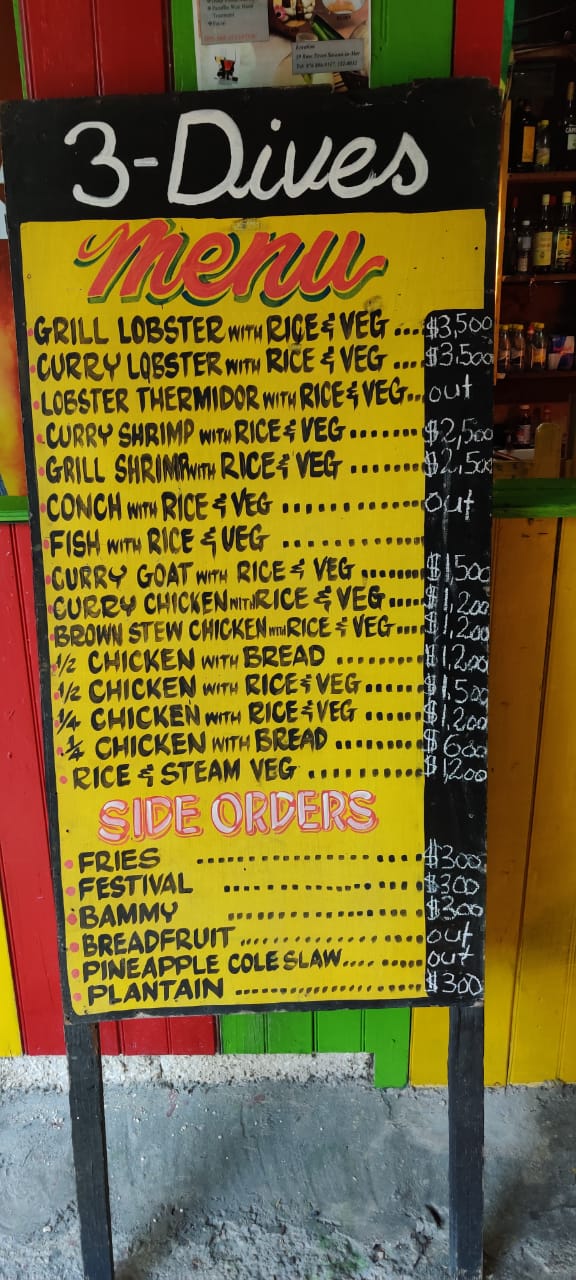 Paraffin Wax Hand
Treatment
Facial
Location
3-Dives
menu
GRILL LOBSTER WITH RICE & VEG .... $3,500
CURRY LOBSTER WITH RICE & VEG .... $3,500
LOBSTER THERMIDOR WITH RICE & VEG... out
CURRY SHRIMP WITH RICE & VEG ....... $2,500
GRILL SHRIMP WITH RICE & VEG ....... $2,500
CONCH WITH RICE & VEG ............ out
FISH WITH RICE & VEG ............
CURRY GOAT WITH RICE & VEG ....... $1,500
CURRY CHICKEN WITH RICE & VEG ..... $1,200
BROWN STEW CHICKEN WITH RICE & VEG.... $1,200
1/2 CHICKEN WITH BREAD ......... $1,200
1/2 CHICKEN WITH RICE & VEG ...... $1,500
1/4 CHICKEN WITH RICE & VEG ...... $1,200
1/4 CHICKEN WITH BREAD ......... $600
RICE & STEAM VEG ........... $1200
SIDE ORDERS
FRIES .................... $300
FESTIVAL .................. $300
BAMMY .................. $300
BREADFRUIT .................. out
PINEAPPLE COLESLAW.... ...... out
PLANTAIN .................. $300